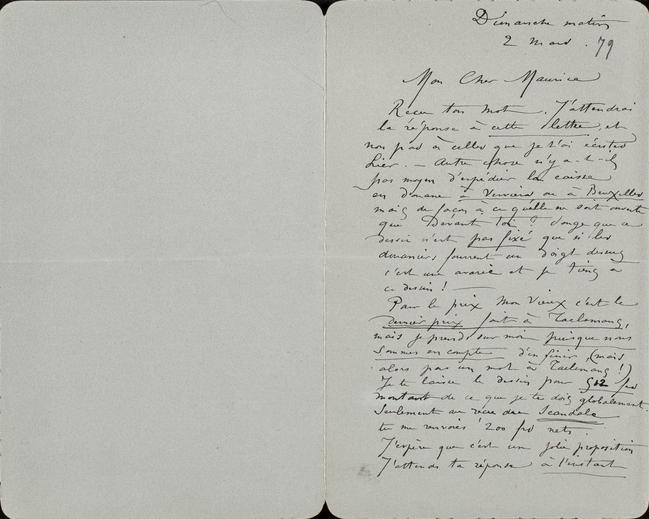 Dimanche matin
2 Mars. 79
Mon Cher Maurice
Recu ton mot. J'attendrai
la réponse à cette lettre, et
non pas à celles que je t'ai écrites
hier. — Autre chose n'y a-t-il
pas moyen d'expédier la caisse
en douane à Verviers ou à Bruxelles
mais de façon à ce qu'elle ne soit ouverte
que Devant toi? Songe que ce
dessin n'est pas fixé que si les
douaniers, fourrent un doigt dessus
c'est une avarie et je tiens à
ce dessin!
Pour le prix Mon Vieux c'est le
dernier prix fait à Taelemans,
mais je prends sur moi puisque nous
sommes en compte d'en finir (mais
alors pas un mot à Taelemans!)
Je te laisse le dessin pour 512 frs
montant de ce que je te dois globalement.
Seulement au reçu du Scandale
tu me renvoies 200 frs nets
J'espère que c'est une jolie proposition
J'attends ta réponse à l'instant